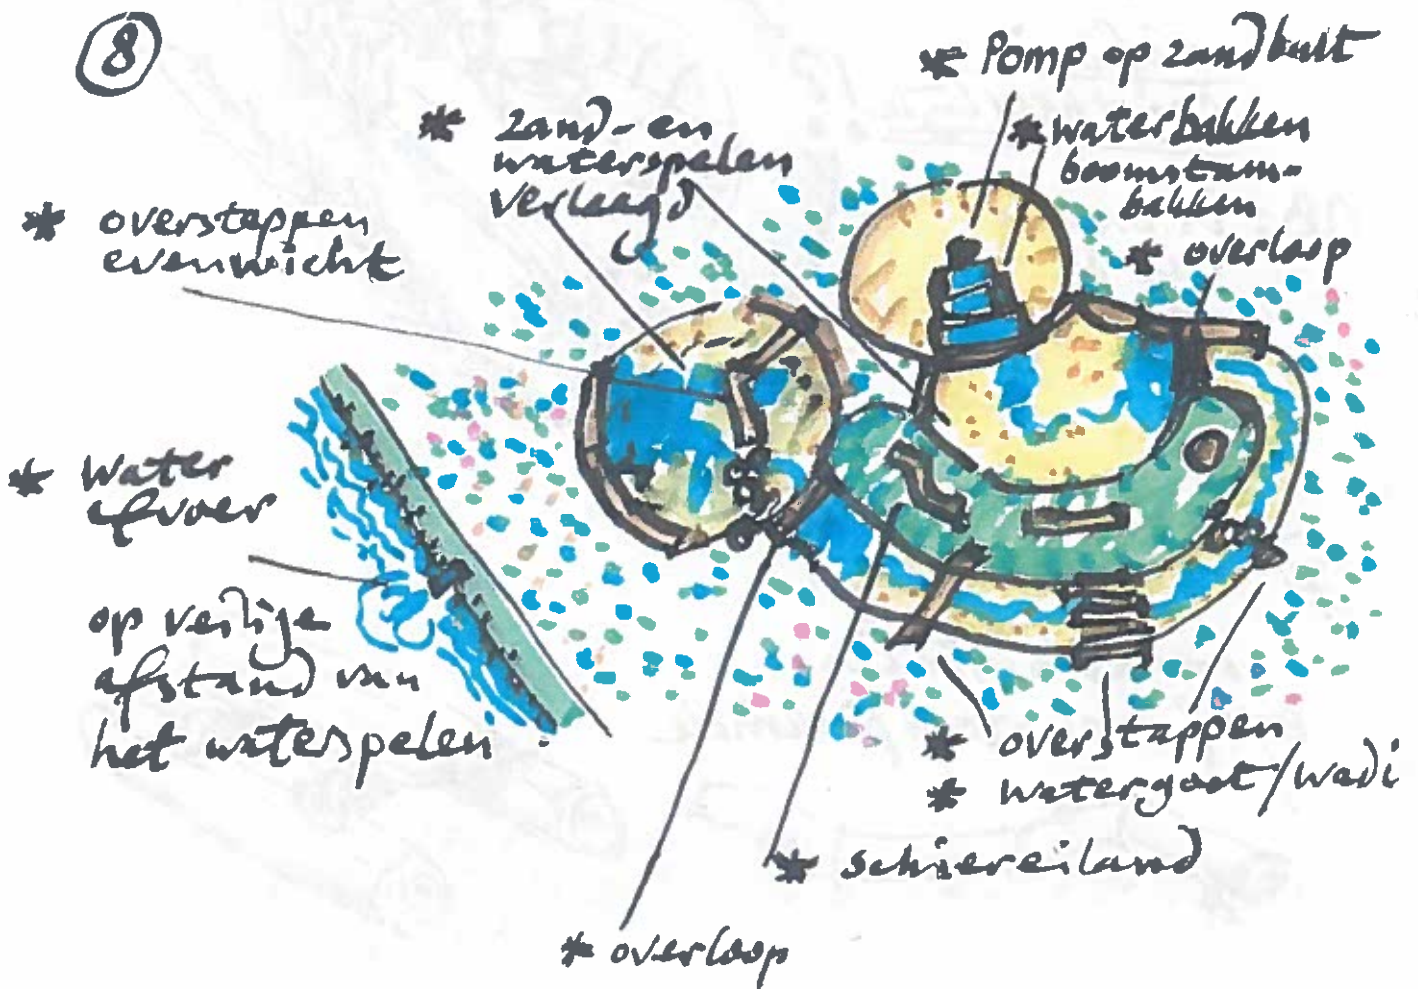 8
* Pomp op zandbult
* zand- en
waterspelen
verlaagd
* waterbakken
boomstam-
bakken
* overstappen
evenwicht
* overloop
* Water
afvoer
op veilige
afstand van
het waterspelen
* overstappen
* watergoot/wadi
* schiereiland
* overloop